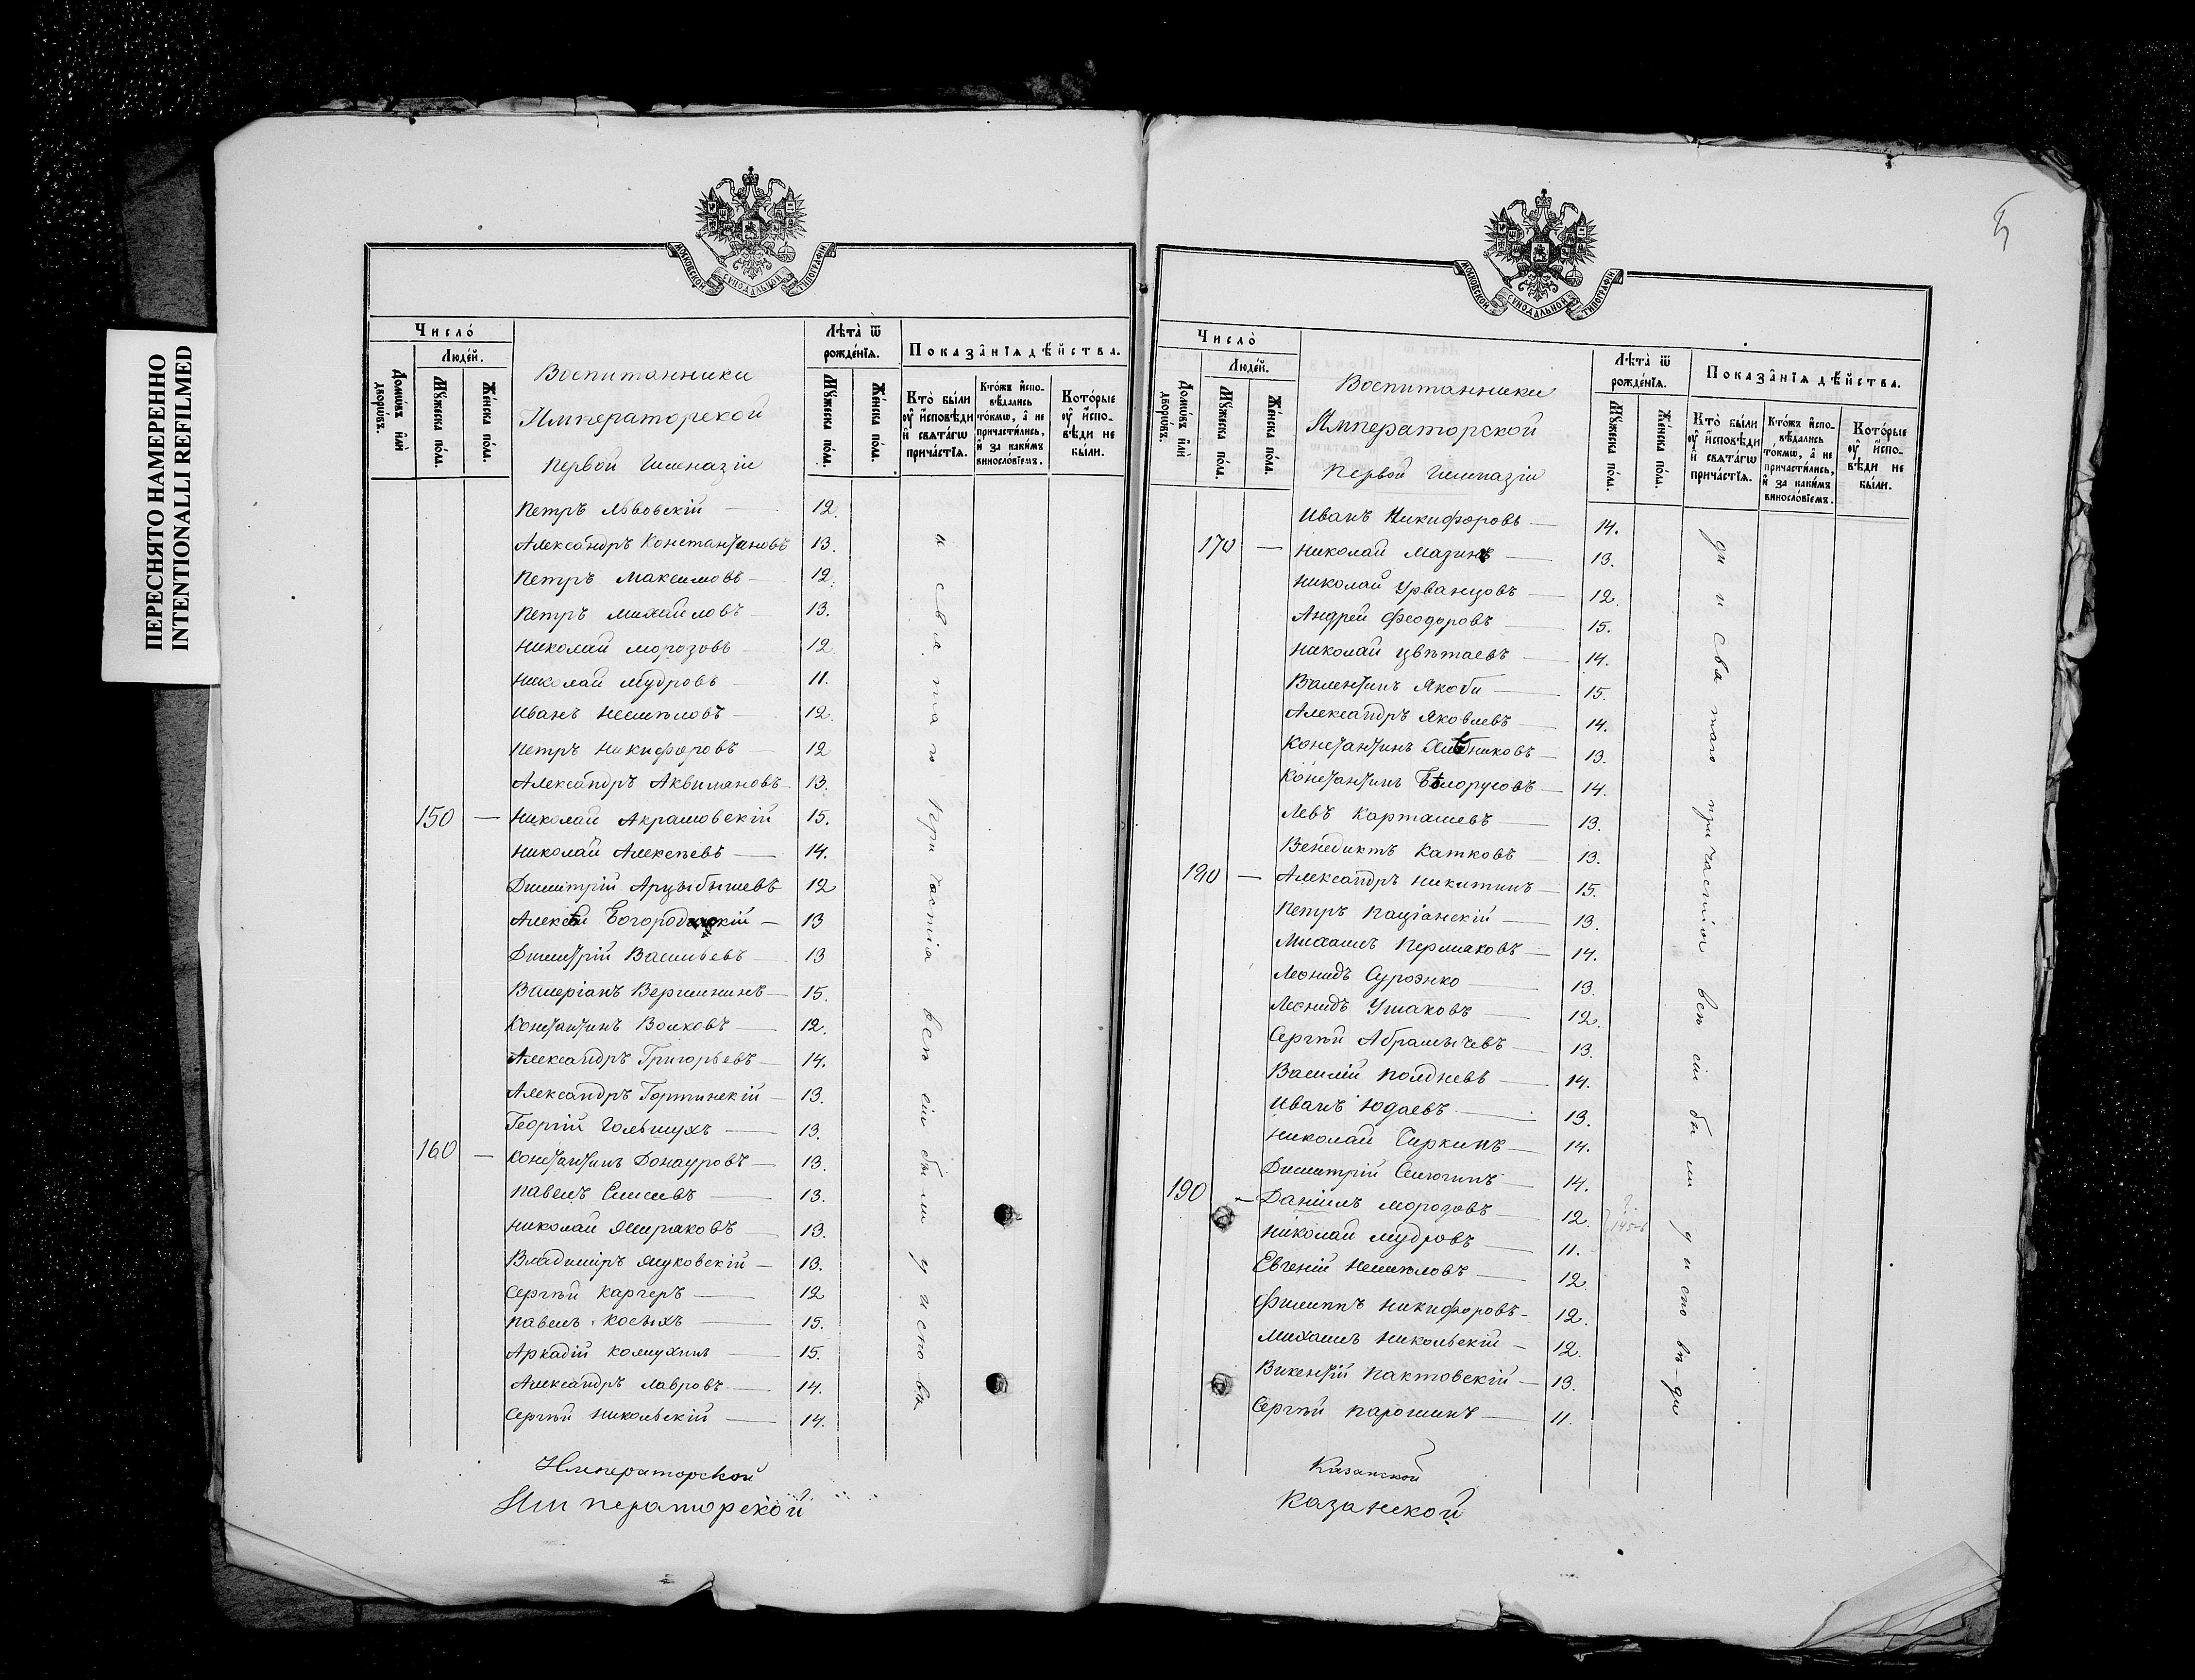 ПЕРЕСНЯТО НАМЕРЕННО
INTENTIONALLI REFILMED
МОСКОВСКОЙ СѴНОДАЛЬНОЙ ТИПОГРАФІИ
Число̀
Люде́й.
Домо́въ и҆лѝ дворо́въ.
Мꙋ́жеска по́ла.
Же́нска по́ла.
Воспитанники
Императорской
Первой Гимназіи
Лѣта̀ ѿ рожде́нїѧ.
Мꙋ́жеска по́ла.
Же́нска по́ла.
Показа̂нїѧ дѣ́йства.
Кто̀ бы́ли ᲂу҆ и҆сповѣ́ди и҆ свѧта́гѡ прича́стїѧ.
Кто́жъ и҆спо-вѣ́дались то́кмѡ, а҆ не причасти́лись, и҆ за каки́мъ винословїемъ.
Кото́рые ᲂу҆ и҆спо-вѣ́ди не бы́ли.
Петръ Львовскій — 12.
Александръ Константиновъ 13.
Петръ Максимовъ — 12.
Петръ Михайловъ — 13.
Николай Морозовъ — 12
Николай Мудровъ — 11.
Иванъ Несмѣловъ — 12.
Петръ Никифоровъ — 12
Александръ Аквиляновъ 13.
150 — Николай Акрамовскій 15.
Николай Алексѣевъ — 14.
Димитрій Арцыбышевъ 12
Алексѣй Богородицкій — 13
Димитрій Васильевъ — 13
Валеріанъ Вершининъ — 15.
Константинъ Волковъ — 12.
Александръ Григорьевъ — 14.
Александръ Гортинскій — 13.
Георгій Гольшухъ — 13.
160 — Константинъ Донауровъ — 13.
Павелъ Елисеевъ — 13.
Николай Жмраковъ — 13.
Владиміръ Жуковскій — 13.
Сергѣй Каргеръ — 12
Павелъ Косыхъ — 15.
Аркадій Колчухинъ — 15.
Александръ Лавровъ — 14.
Сергѣй Никольскій — 14.
и святаго причастія всѣ сіи были у исповѣ
Императорской
Императорской
5
МОСКОВСКОЙ СѴНОДАЛЬНОЙ ТИПОГРАФІИ
Число̀
Люде́й.
Домо́въ и҆лѝ дворо́въ.
Мꙋ́жеска по́ла.
Же́нска по́ла.
Воспитанники
Императорской
Первой Гимназіи
Лѣта̀ ѿ рожде́нїѧ.
Мꙋ́жеска по́ла.
Же́нска по́ла.
Показа̂нїѧ дѣ́йства.
Кто̀ бы́ли ᲂу҆ и҆сповѣ́ди и҆ свѧта́гѡ прича́стїѧ.
Кто́жъ и҆спо-вѣ́дались то́кмѡ, а҆ не причасти́лись, и҆ за каки́мъ винословїемъ.
Кото́рые ᲂу҆ и҆спо-вѣ́ди не бы́ли.
Иванъ Никифоровъ — 14.
170 — Николай Мазинъ — 13.
Николай Урванцовъ — 12.
Андрей Феодоровъ — 15.
Николай Цвѣтаевъ — 14.
Валентинъ Якоби — 15.
Александръ Яковлевъ — 14.
Константинъ Хлѣбниковъ — 13.
Константинъ Бѣлорусовъ — 14.
Левъ Карташевъ — 13.
Венедиктъ Катковъ — 13.
180 — Александръ Никитинъ — 15.
Петръ Націанскій — 13.
Михаилъ Пермяковъ — 14.
Леонидъ Суроэнко — 13.
Леонидъ Ушаковъ — 12.
Сергѣй Абрамычевъ — 13.
Василій Полдневъ — 14.
Иванъ Юдаевъ — 13.
Николай Чиркинъ — 14.
Димитрій Смючинъ — 14.
190 — Даніилъ Морозовъ — 12.
Николай Мудровъ — 11.
Евгеній Несмѣловъ — 12.
Филиппъ Никифоровъ — 12.
Михаилъ Никольскій — 12.
Викентій Пактовскій — 13.
Сергѣй Парошинъ — 11.
ди и святаго причастія всѣ сіи были у исповѣ-ди
Казанской
Казанской